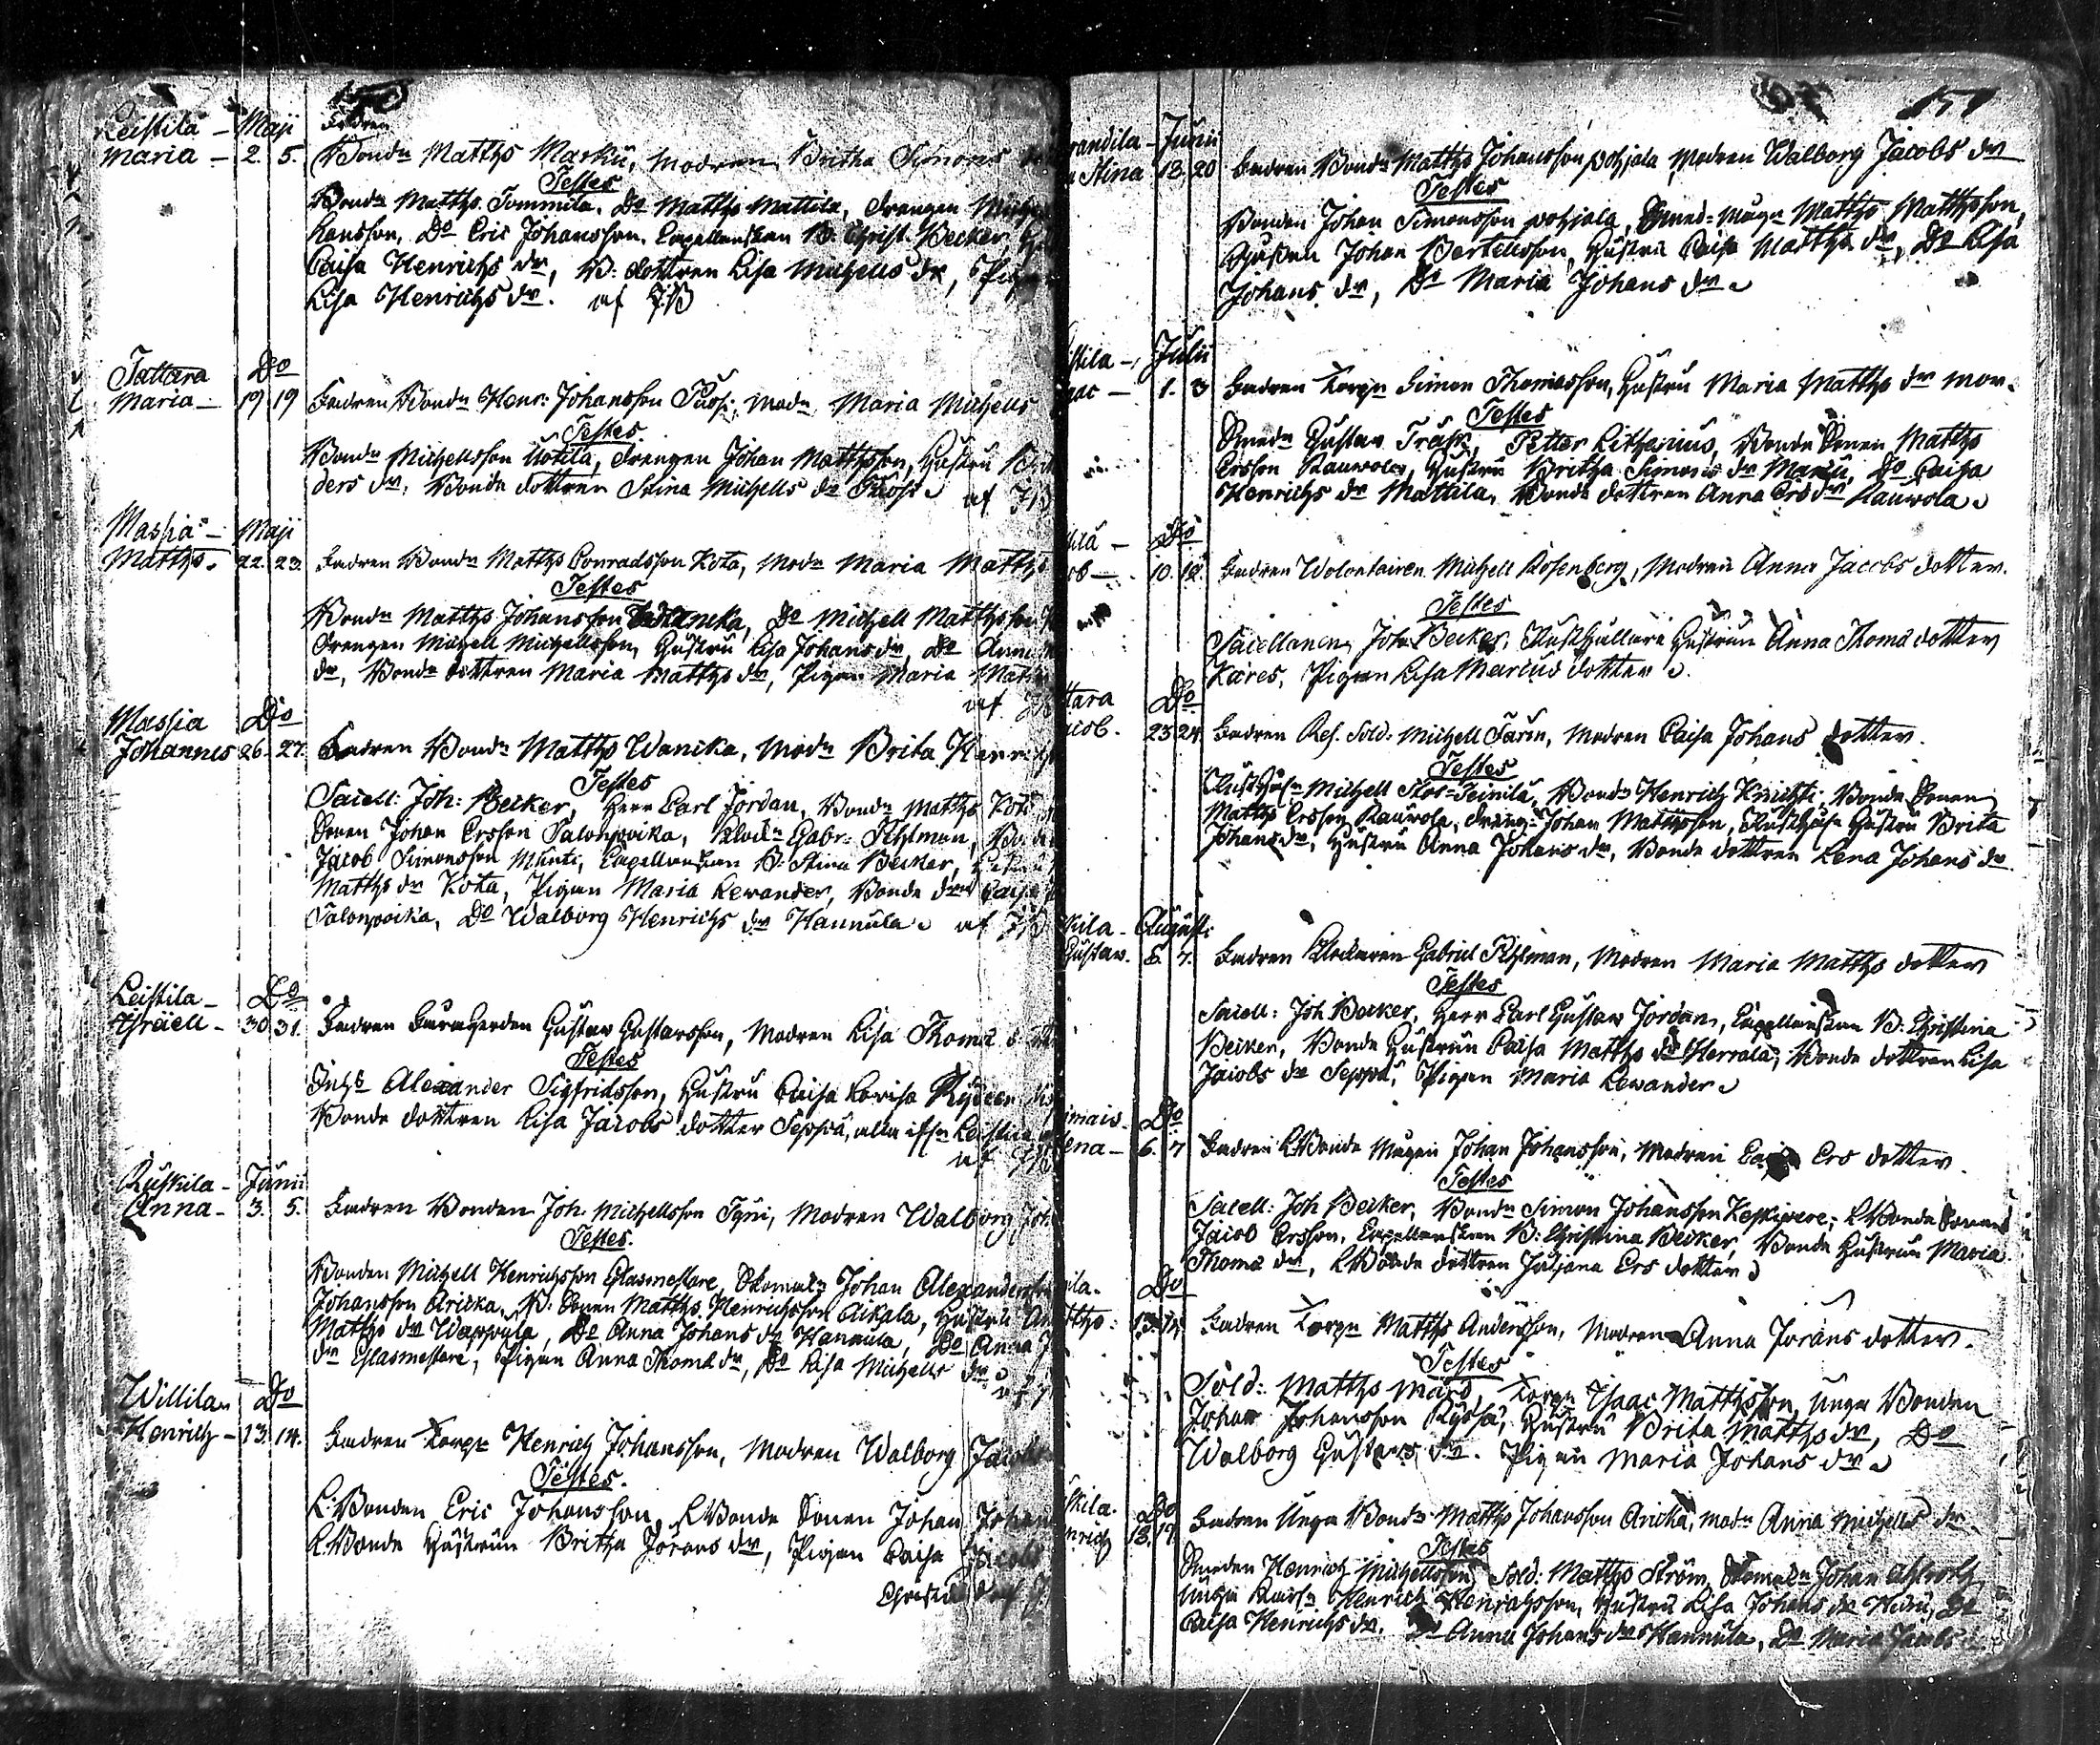 Leistilä — Maji
Fadren
Maria — 2. 5. Bonden Matths Markü, Modren Britha Simons
Testes
Bondn Matths Tommila. Do Matths Mattila, drengen
Hansson, Do Eric Johansson, Capellanskan B. Christ. Becker,
Caisa Henrichs dr, B: dottren Lisa Michells dr,
Lisa Henrichs dr. af JB
Tattara Do
Maria — 19 19 Fadren Bondn Henr: Johansson Passi, Modn Maria Michells
Testes
Bondn Michellsson Uotila, drengen Johan Matthsson, Hustru
ders dr, Bonde dottren Stina Michells dr Passi af JB
Masia — Maji
Matths. 22. 23. Fadren Bondn Matths Conradsson Kota, Modn Maria Matths
Testes
Bondn Matths Johansson Wanika, Do Michell Matthsson
Drengen Michell Michellsson, Hustru Lisa Johans dr, Do Anna
dr, Bonde dottren Maria Matths dr, Pigan Maria
af JB
Masia Do
Johannes 26. 27. Fadren Bondn Matths Wanika, Modn Brita Henrichs
Testes
Sacell: Joh: Becker, Herr Carl Jordan, Bondn Matths Kota
Sonen Johan Ersson Talonpoika, Klock: Gabr: Pihlman,
Jacob Simonsson Münti, Capellanskan B: Stina Becker,
Matths dr Kota, Pigan Maria Lewander, Bonde dr Caisa
Talonpoika, Do Walborg Henrichs dr Hannula af JB
Leistila — Do
Israell — 30. 31. Fadren Gustav Gustavsson, Modren Lisa Thomæ
Testes
Inhs Alexander Sigfridsson, Hustru Caisa Lovisa
Bonde dottren Lisa Jacobs dotter Seppä, alla
af JB
Ruskila — Junii
Anna — 3. 5. Fadren Bonden Joh. Michellsson Tyni, Modren Walborg
Testes.
Bonden Michell Henrichsson Glasmestare, Skomaln Johan Alexandersson
Johansson Aricka, B: Sonen Matths Henrichsson Aikala, Hustru
Matths dr Warpyla, Do Anna Johans dr Hannula, Do Anna
dr Glasmestare, Pigan Anna Thomæ dr, Do Lisa Michells dr
Willilan Do
Henrich — 13. 14. Fadren Torpn Henrich Johansson, Modren Walborg Jacobs
Testes.
L: Bonden Eric Johansson, L Bonde Sonen Johan
L. Bonde Hustrun Britha Jörans dr, Pigan Caisa
151
randila — Junii
Stina 18. 20 Fadren Bondn Matths Johansson Pohjala, Modren Walborg Jacobs dr
Testes
Bonden Johan Simonsson Pohjala, Matths Matthsson,
Johan Bertellsson, Hustru Caisa Matths dr, Do Lisa
Johans dr, Do Maria Johans dr
stila — Julii
sac — 1. 3 Fadren Torpn Simon Thomasson, Hustru Maria Matths dr mor.
Testes
Smedn Gustav Träsk, Petter Lithenius, Bonde Sonen Matths
Ersson Rauwola, Hustru Britha Simons dr Markü, Do Caisa
Henrichs dr Mattila, Bonde dottren Anna Ers dr Rauwola
tilä — Do
cob — 10. 12. Fadren Wolontairen Michell Rosenberg, Modren Anna Jacobs dotter.
Testes
Sacellanen Joh: Becker, Rusthållare Hustrun Anna Thomæ dotter
Kares, Pigan Lisa Marcus dotter
ttara Do
acob. 23 24. Fadren Res. Sold. Michell Farin, Modren Caisa Johans dotter.
Testes
Michell Stor-Seinilä, Bondn Henrich Knichti, Bonde Sonen
Matths Ersson Rauwola, Dreng: Johan Matthsson, Hustru Brita
Johans dr, Hustru Anna Johans dr, Bonde dottren Lena Johans dr
kila — Augusti
Gustav. 6. 7. Fadren Klockaren Gabriel Pihlman, Modren Maria Matths dotter
Testes
Sacell: Joh Becker, Herr Carl Gustav Jordan, Capellanskan B: Christina
Becker, Bonde Hustrun Caisa Matths dr Herrala, Bonde dottren Lisa
Jacobs dr Seppä, Pigan Maria Lewander
mais — Do
ena — 6. 7 Fadren L Bonde Mågen Johan Johansson, Modren Ers dotter.
Testes
Sacell: Joh Becker, Bondn Simon Johansson Keskiwere, L Bonde Sonen
Jacob Ersson, Capellanskan B: Christina Becker, Bonde Hustrun Maria
Thomæ dr, L Bonde dottren Juljana Ers dotter
ila. Do
tths: 13. 14. Fadren Torpn Matths Andersson, Modren Anna Jörans dotter.
Testes
Sold: Matths Mård, Torpn Isaac Matthsson, Unga Bonden
Johan Johansson Ryssä, Hustru Brita Matths dr, Do
Walborg Gustavs dr. Pigan Maria Johans dr
skila. Do
nrich 18. 19. Fadren Unga Bondn Matths Johansson Aricka, Modn Anna Michells dr
Testes
Smeden Henrich Michellsson, Sold: Matths Ström, Skomaln Johan Ahlroth
Unga Henrich Henrichsson, Hustru Lisa Johans dr Do
Caisa Henrichs dr. Do Anna Johans dr Hannula, Do Maria Jacobs